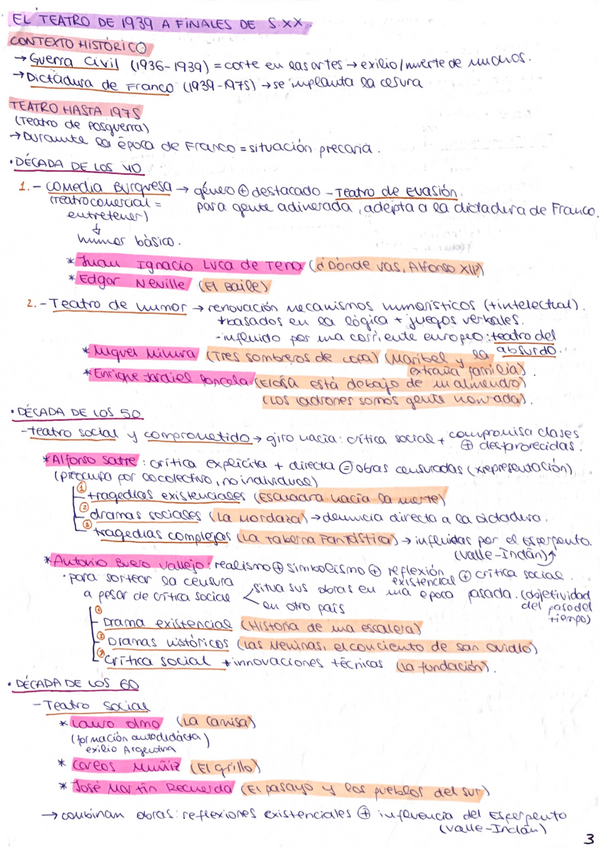 EL TEATRO DE 1939 A FINALES DE S XX.
CONTEXTO HISTÓRICO
→ Guerra Civil (1936-1939) = corte en las artes → exilio/muerte de muchos.
→ Dictadura de Franco (1939-1975) → se implanta la cesura
TEATRO HASTA 1975
(Teatro de Posguerra)
→ Durante la época de Franco = situación precaria.
· DÉCADA DE LOS 40
1.- Comedia Burguesa → género ⊕ destacado - Teatro de Evasión.
(teatro comercial = para gente adinerada, adepta a la dictadura de Franco.
entretener)
↓
humor básico.
* Juan Ignacio Luca de Tena (¿Dónde vas, Alfonso XII?)
* Edgar Neville (El Baile)
2.- Teatro de humor → renovación mecanismos humorísticos (+intelectual).
+basados en la lógica + juegos verbales.
- influido por una corriente europeo: teatro del
absurdo.
* Miguel Mihura (Tres sombreros de copa) (Maribel y la
extraña familia).
* Enrique Jardiel Poncela (Eloísa está debajo de un almendro)
(Los ladrones somos gente honrada).
· DÉCADA DE LOS 50
- Teatro social y comprometido → giro hacia: crítica social + compromiso clases
⊕ desfavorecidas.
* Alfonso Sastre: crítica explícita + directa ⊜ obras censuradas (x representación)
(preocupa por lo colectivo, no individuos)
① tragedias existenciales (Escuadra hacia la muerte)
② dramas sociales (La mordaza) → denuncia directa a la dictadura.
③ tragedias complejas (La taberna fantástica) → influidas por el Esperpento.
(Valle-Inclán)
* Antonio Buero Vallejo: realismo ⊕ simbolismo ⊕ reflexión existencial ⊕ crítica social.
· para sortear la censura
a pesar de crítica social < situa sus obras en una época pasada. (objetividad
en otro país del paso del
tiempo)
① Drama existencial (Historia de una escalera)
② Dramas históricos (Las Meninas, el conciento de san ovidio)
③ Crítica social + innovaciones técnicas (La fundación).
· DÉCADA DE LOS 60
- Teatro Social
* Lauro Olmo (La camisa)
(formación autodidacta)
exilio Argentina
* Carlos Muñiz (El grillo)
* José Martín Recuerda (El pasayo y los pueblos del sur)
→ combinan obras: reflexiones existenciales ⊕ influencia del Esperpento
(Valle-Inclán)
3